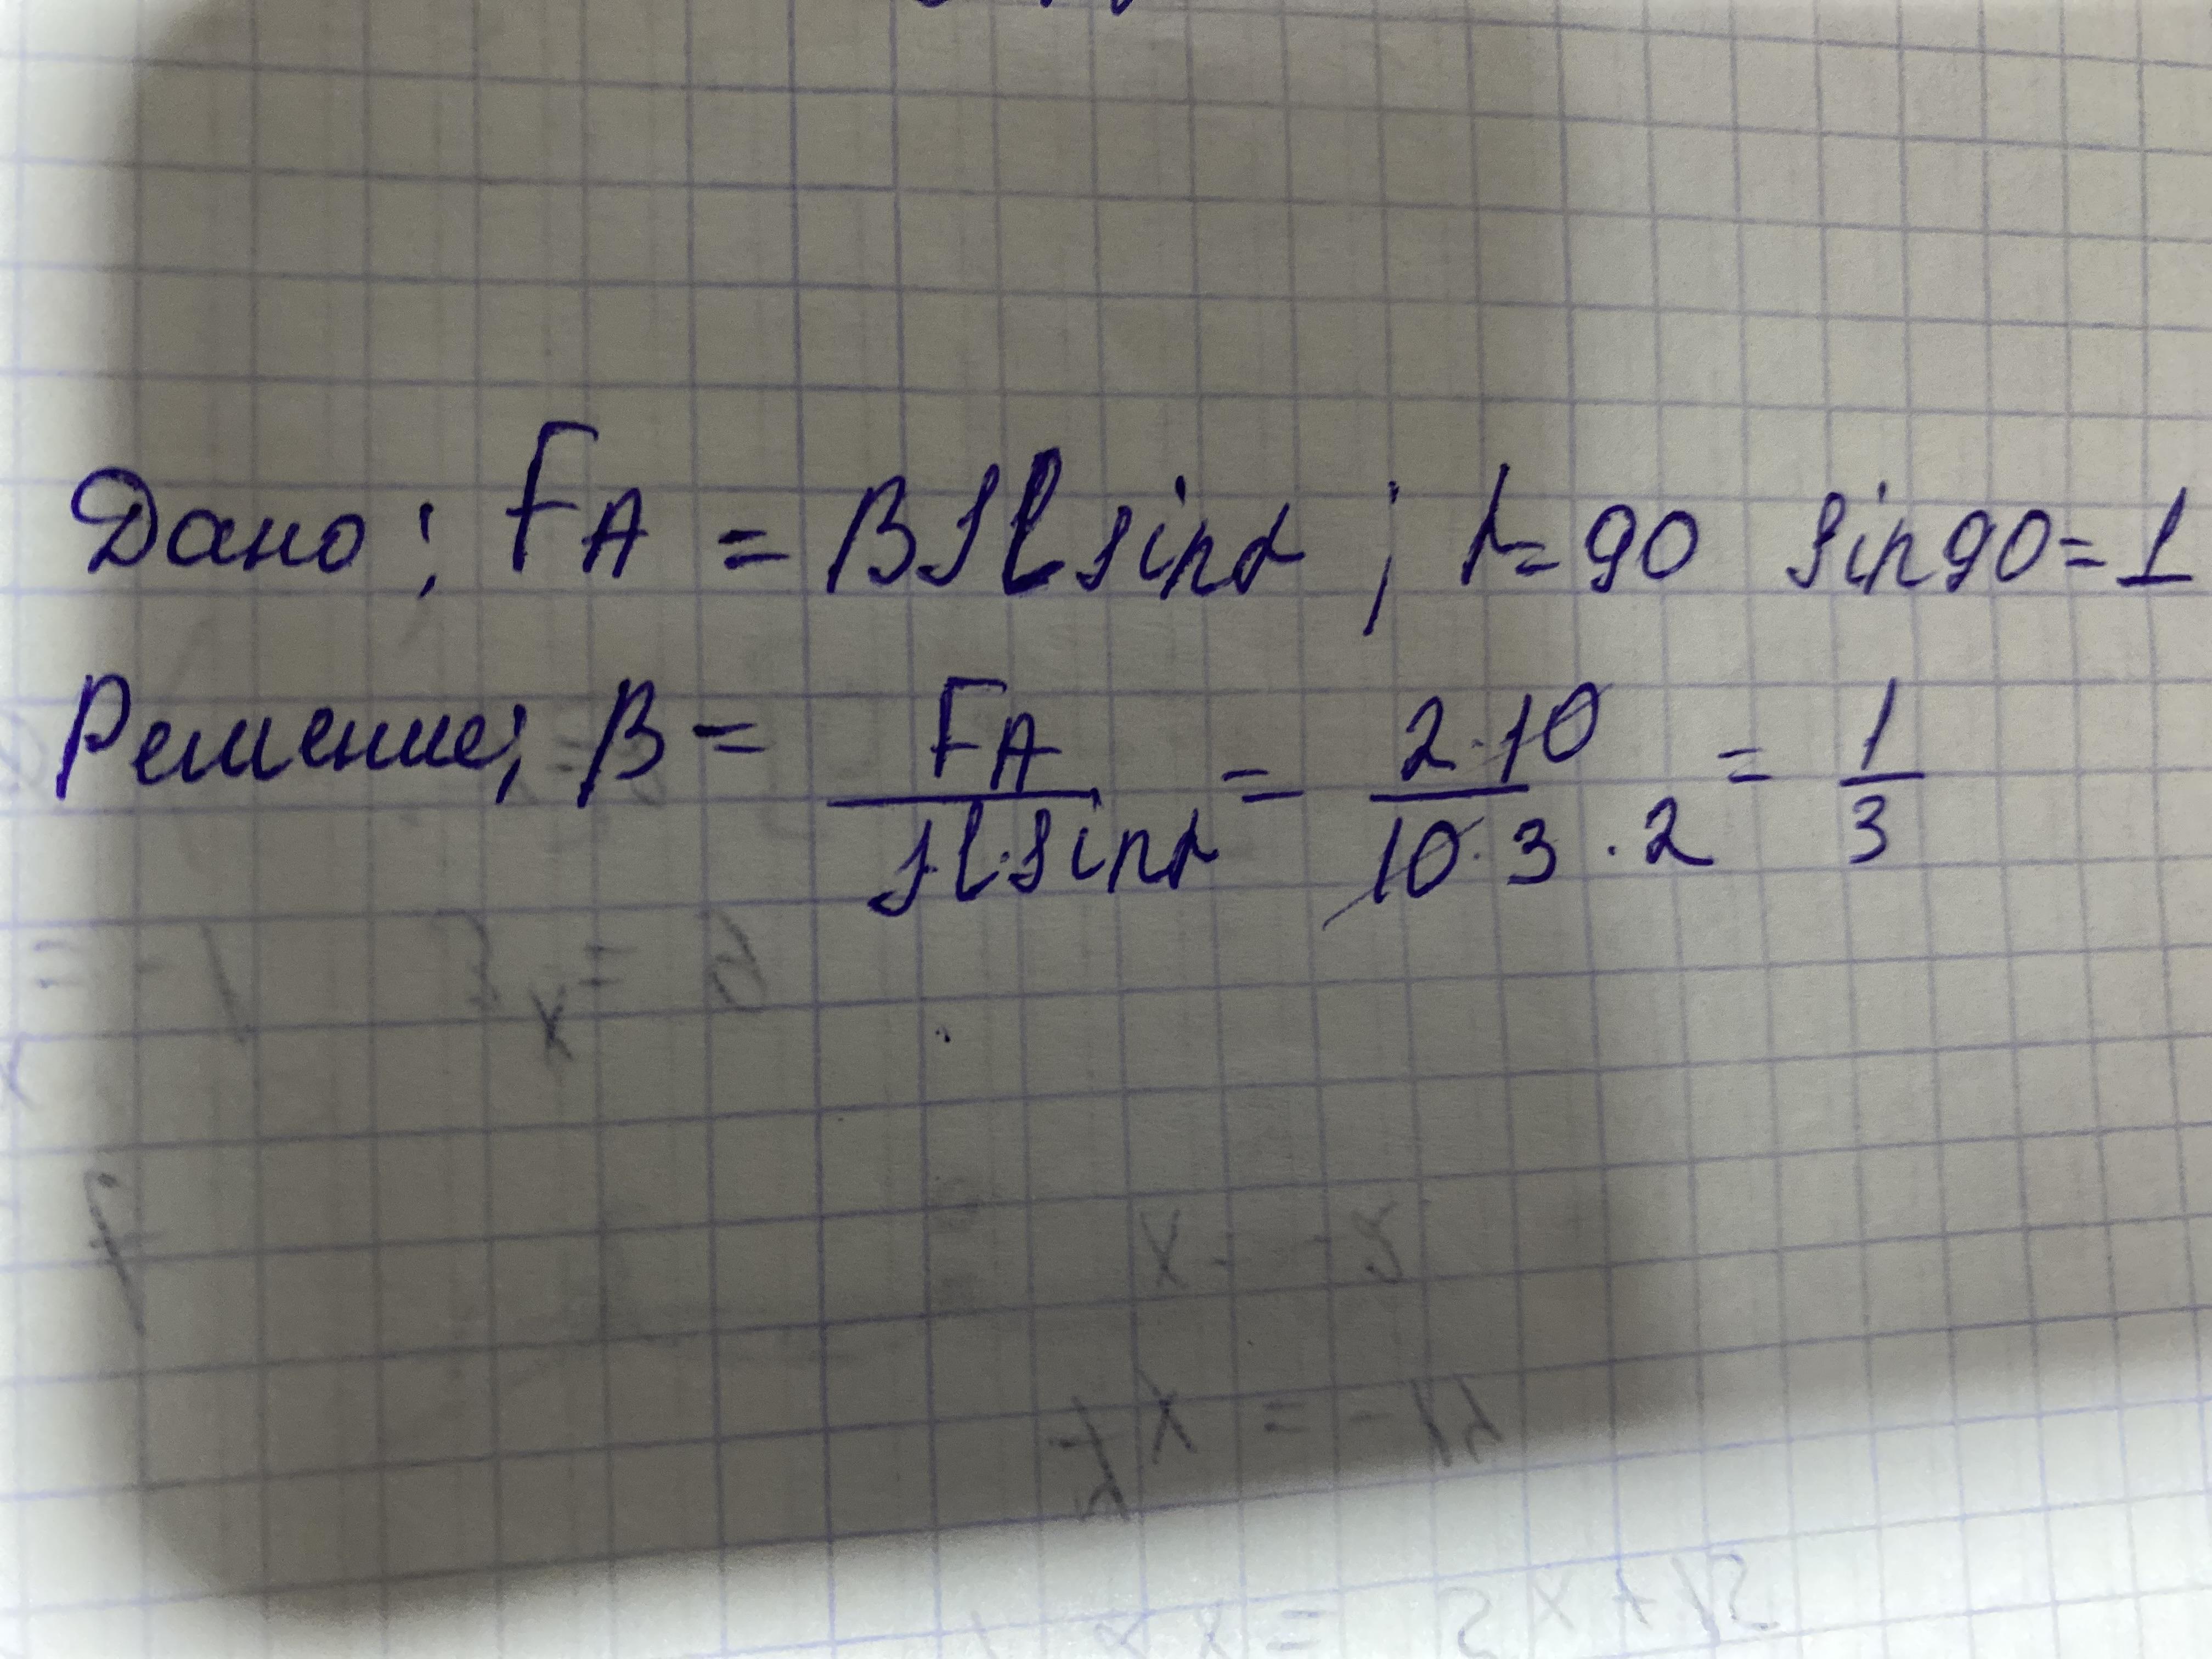 Дано: F_A = BIl sinα ; α=90 sin90=1
Решение: B = F_A / Il·sinα = 2·10 / 10·3·2 = 1/3